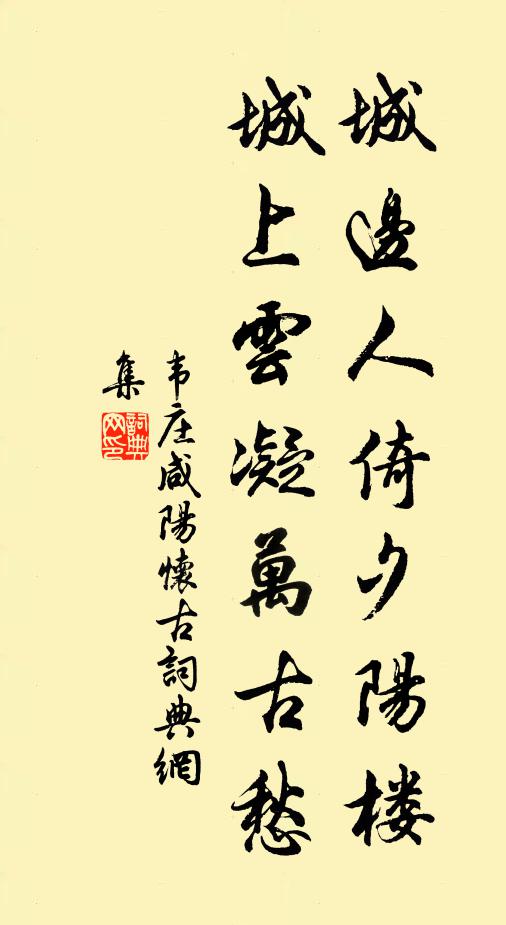 城邊人倚夕陽楼
城上雲凝萬古愁
韦庄咸陽懷古詞典網
集
詞典
网印